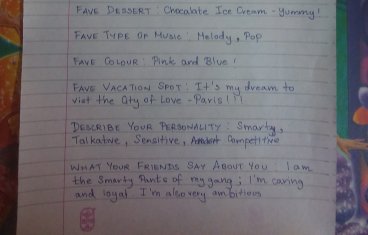 FAVE DESSERT : Chocolate Ice Cream - Yummy!
FAVE TYPE OF MUSIC : Melody, Pop
FAVE COLOUR : Pink and Blue!
FAVE VACATION SPOT : It's my dream to
vist the City of Love - Paris!!!
DESCRIBE YOUR PERSONALITY : Smarty,
Talkative, Sensitive, Competitive
WHAT YOUR FRIENDS SAY ABOUT YOU : I am
the Smarty Pants of my gang; I'm caring
and loyal. I'm also very ambitious